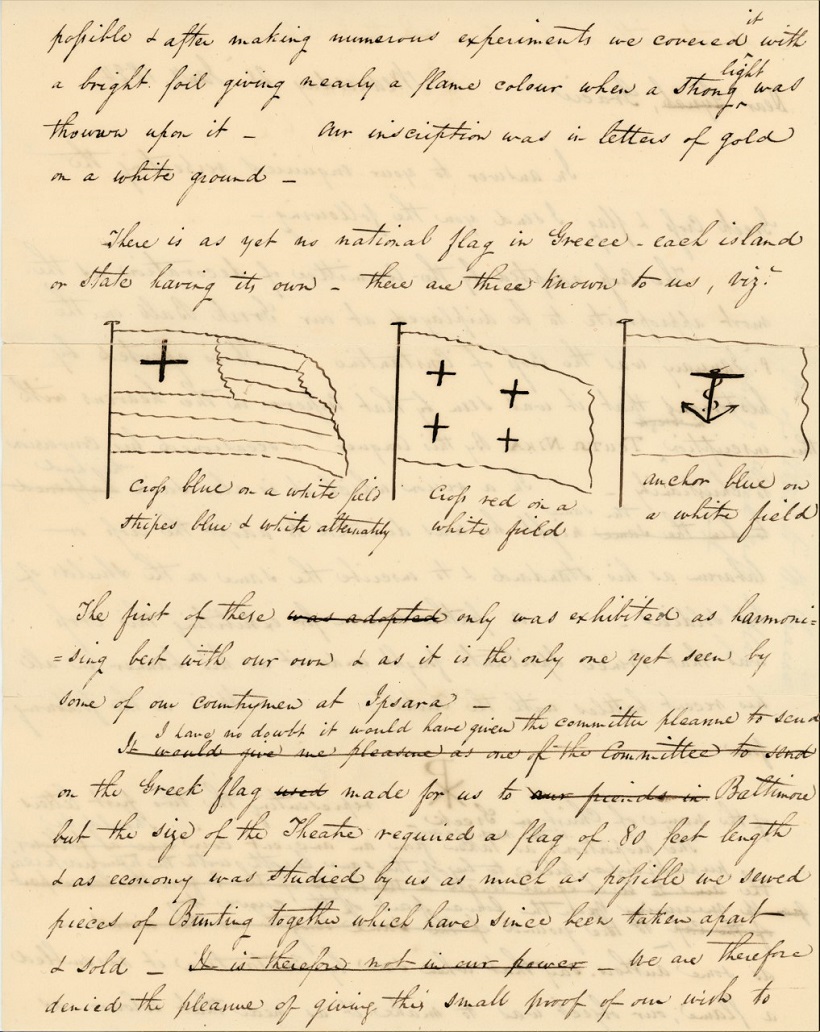 possible & after making numerous experiments we covered it with
a bright foil giving nearly a flame colour when a strong light was
thowwn upon it – Our inscription was in letters of gold
on a white ground –
There is as yet no national flag in Greece – each island
or state having its own – there are three known to us, viz.t
cross blue on a white field
stripes blue & white alternately
cross red on a
white field
anchor blue on
a white field
The first of these was adopted only was exhibited as harmoni=
=sing best with our own & as it is the only one yet seen by
some of our countrymen at Ipsara –
I have no doubt it would have given the committee pleasure to send
It would give me pleasure as one of the Committee to send
on the Greek flag used made for us to our friends in Baltimore
but the size of the Theatre required a flag of 80 feet length
& as economy was studied by us as much as possible we sewed
pieces of Bunting together which have since been taken apart
& sold – It is therefore not in our power – We are therefore
denied the pleasure of giving this small proof of our wish to